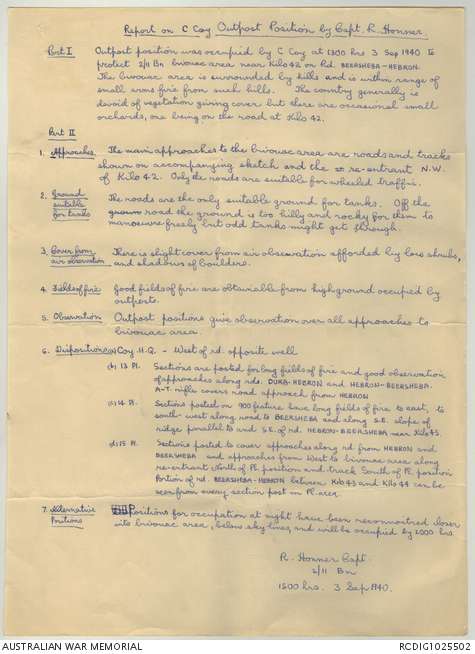 Report on C Coy Outpost Position by Capt. R. Honner.
Part I Outpost position was occupied by C Coy at 1300 hrs 3 Sep 1940 to
protect 2/11 Bn bivouac area near Kilo 42 on Rd. BEERSHEBA-HEBRON.
The bivouac area is surrounded by hills and is within range of
small arms fire from such hills. The country generally is
devoid of vegetation giving cover but there are occasional small
orchards, one being on the road at Kilo 42.
Part II
1. Approaches. The main approaches to the bivouac area are roads and tracks
shown on accompanying sketch and the re-entrant N.W.
of Kilo 42. Only the roads are suitable for wheeled traffic.
2. Ground suitable for tanks The roads are the only suitable ground for tanks. Off the
road the ground is too hilly and rocky for them to
manoeuvre freely but odd tanks might get through.
3. Cover from air observation There is slight cover from air observation afforded by low shrubs,
and shadows of boulders.
4. Fields of fire Good fields of fire are obtainable from high ground occupied by
outposts.
5. Observation Outpost positions give observation over all approaches to
bivouac area.
6. Dispositions (a) Coy H.Q. - West of rd. opposite well
(b) 13 Pl. Sections are posted for long fields of fire and good observation
of approaches along rds. DURA-HEBRON and HEBRON-BEERSHEBA.
A-T. rifle covers road approach from HEBRON
(c) 14 Pl. Sections posted on 900 feature have long fields of fire to east, to
south-west along road to BEERSHEBA and along S.E. slope of
ridge parallel to and S.E. of rd. HEBRON-BEERSHEBA near Kilo 45.
(d) 15 Pl. Sections posted to cover approaches along rd from HEBRON and
BEERSHEBA and approaches from West to bivouac area along
re-entrant North of Pl. position and track South of Pl. position
Portion of rd. BEERSHEBA-HEBRON between Kilo 43 and Kilo 44 can be
seen from every section post in Pl. area.
7. Alternative Positions Positions for occupation at night have been reconnoitred closer
into bivouac area, below sky lines, and will be occupied by 2000 hrs.
R. Honner Capt.
2/11 Bn
1500 hrs. 3 Sep 1940.
AUSTRALIAN WAR MEMORIAL
RCDIG1025502